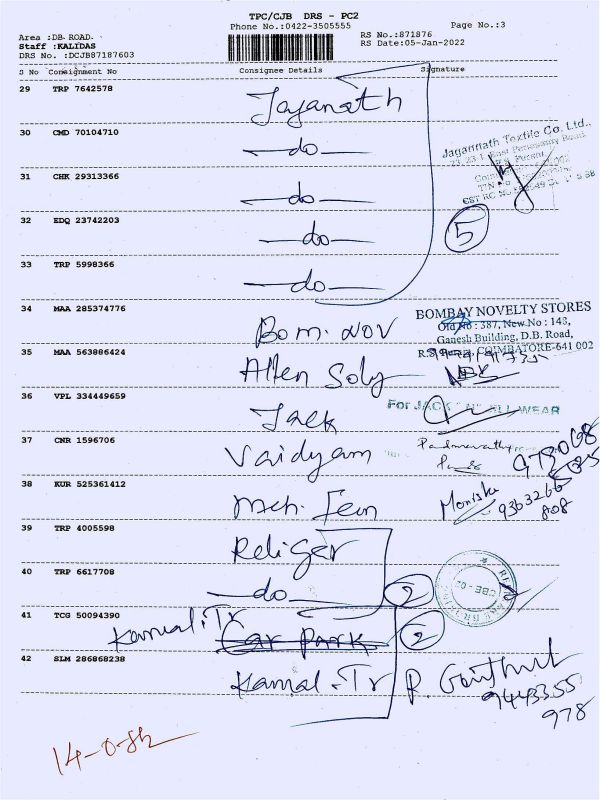 TPC/CJB DRS - PC2
Phone No.:0422-3505555
Page No.:3
Area :DB ROAD
RS No.:871876
Staff :KALIDAS
RS Date:05-Jan-2022
DRS No. :DCJB87187603
S No Consignment No Consignee Details Signature
29 TRP 7642578
Jaganath
30 CMD 70104710
-do-
Jagannath Textile Co. Ltd.,
31 CHK 29313366
-do-
32 EDQ 23742203
-do-
5
33 TRP 5998366
-do-
34 MAA 285374776
Bom. Nov
BOMBAY NOVELTY STORES
Old No : 387, New No : 143,
Ganesh Building, D.B. Road,
R.S. Puram, COIMBATORE-641 002
35 MAA 563886424
Allen Soly
36 VPL 334449659
Jack
For JACK
37 CNR 1596706
Vaidyam
38 KUR 525361412
Meh. Fein
Monisha
9363266
808
39 TRP 4005598
Religer
40 TRP 6617708
-do-
2
41 TCG 50094390
Kamal.Tr
Car Park
2
42 SLM 286868238
Kamal.Tr
9443355
978